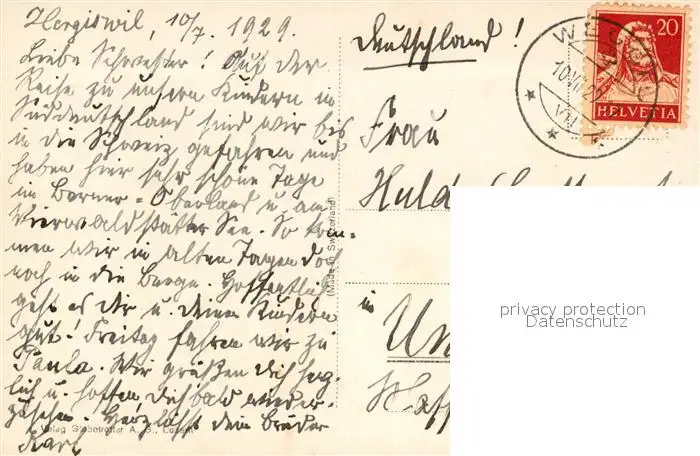 Hergiswil, 10/7. 1929.
Liebe Schwester! Auf der
Reise zu unsern Kindern in
Süddeutschland sind wir bis
in die Schweiz gefahren und
haben hier sehr schöne Tage
im Berner-Oberland u. am
Vierwaldstätter See. So kom-
men wir in alten Tagen doch
noch in die Berge. Hoffentlich
geht es dir u. deinen Kindern
gut! Freitag fahren wir zu
Paula. Wir grüßen dich herz-
lich u. hoffen dich bald wieder-
zusehen. Herzlichst dein Bruder
Karl
Verlag Globetrotter A. G., Luzern
(Made in Switzerland)
Deutschland!
Frau
Huld
in
Un
20
HELVETIA
10.VII.29
VII
privacy protection
Datenschutz